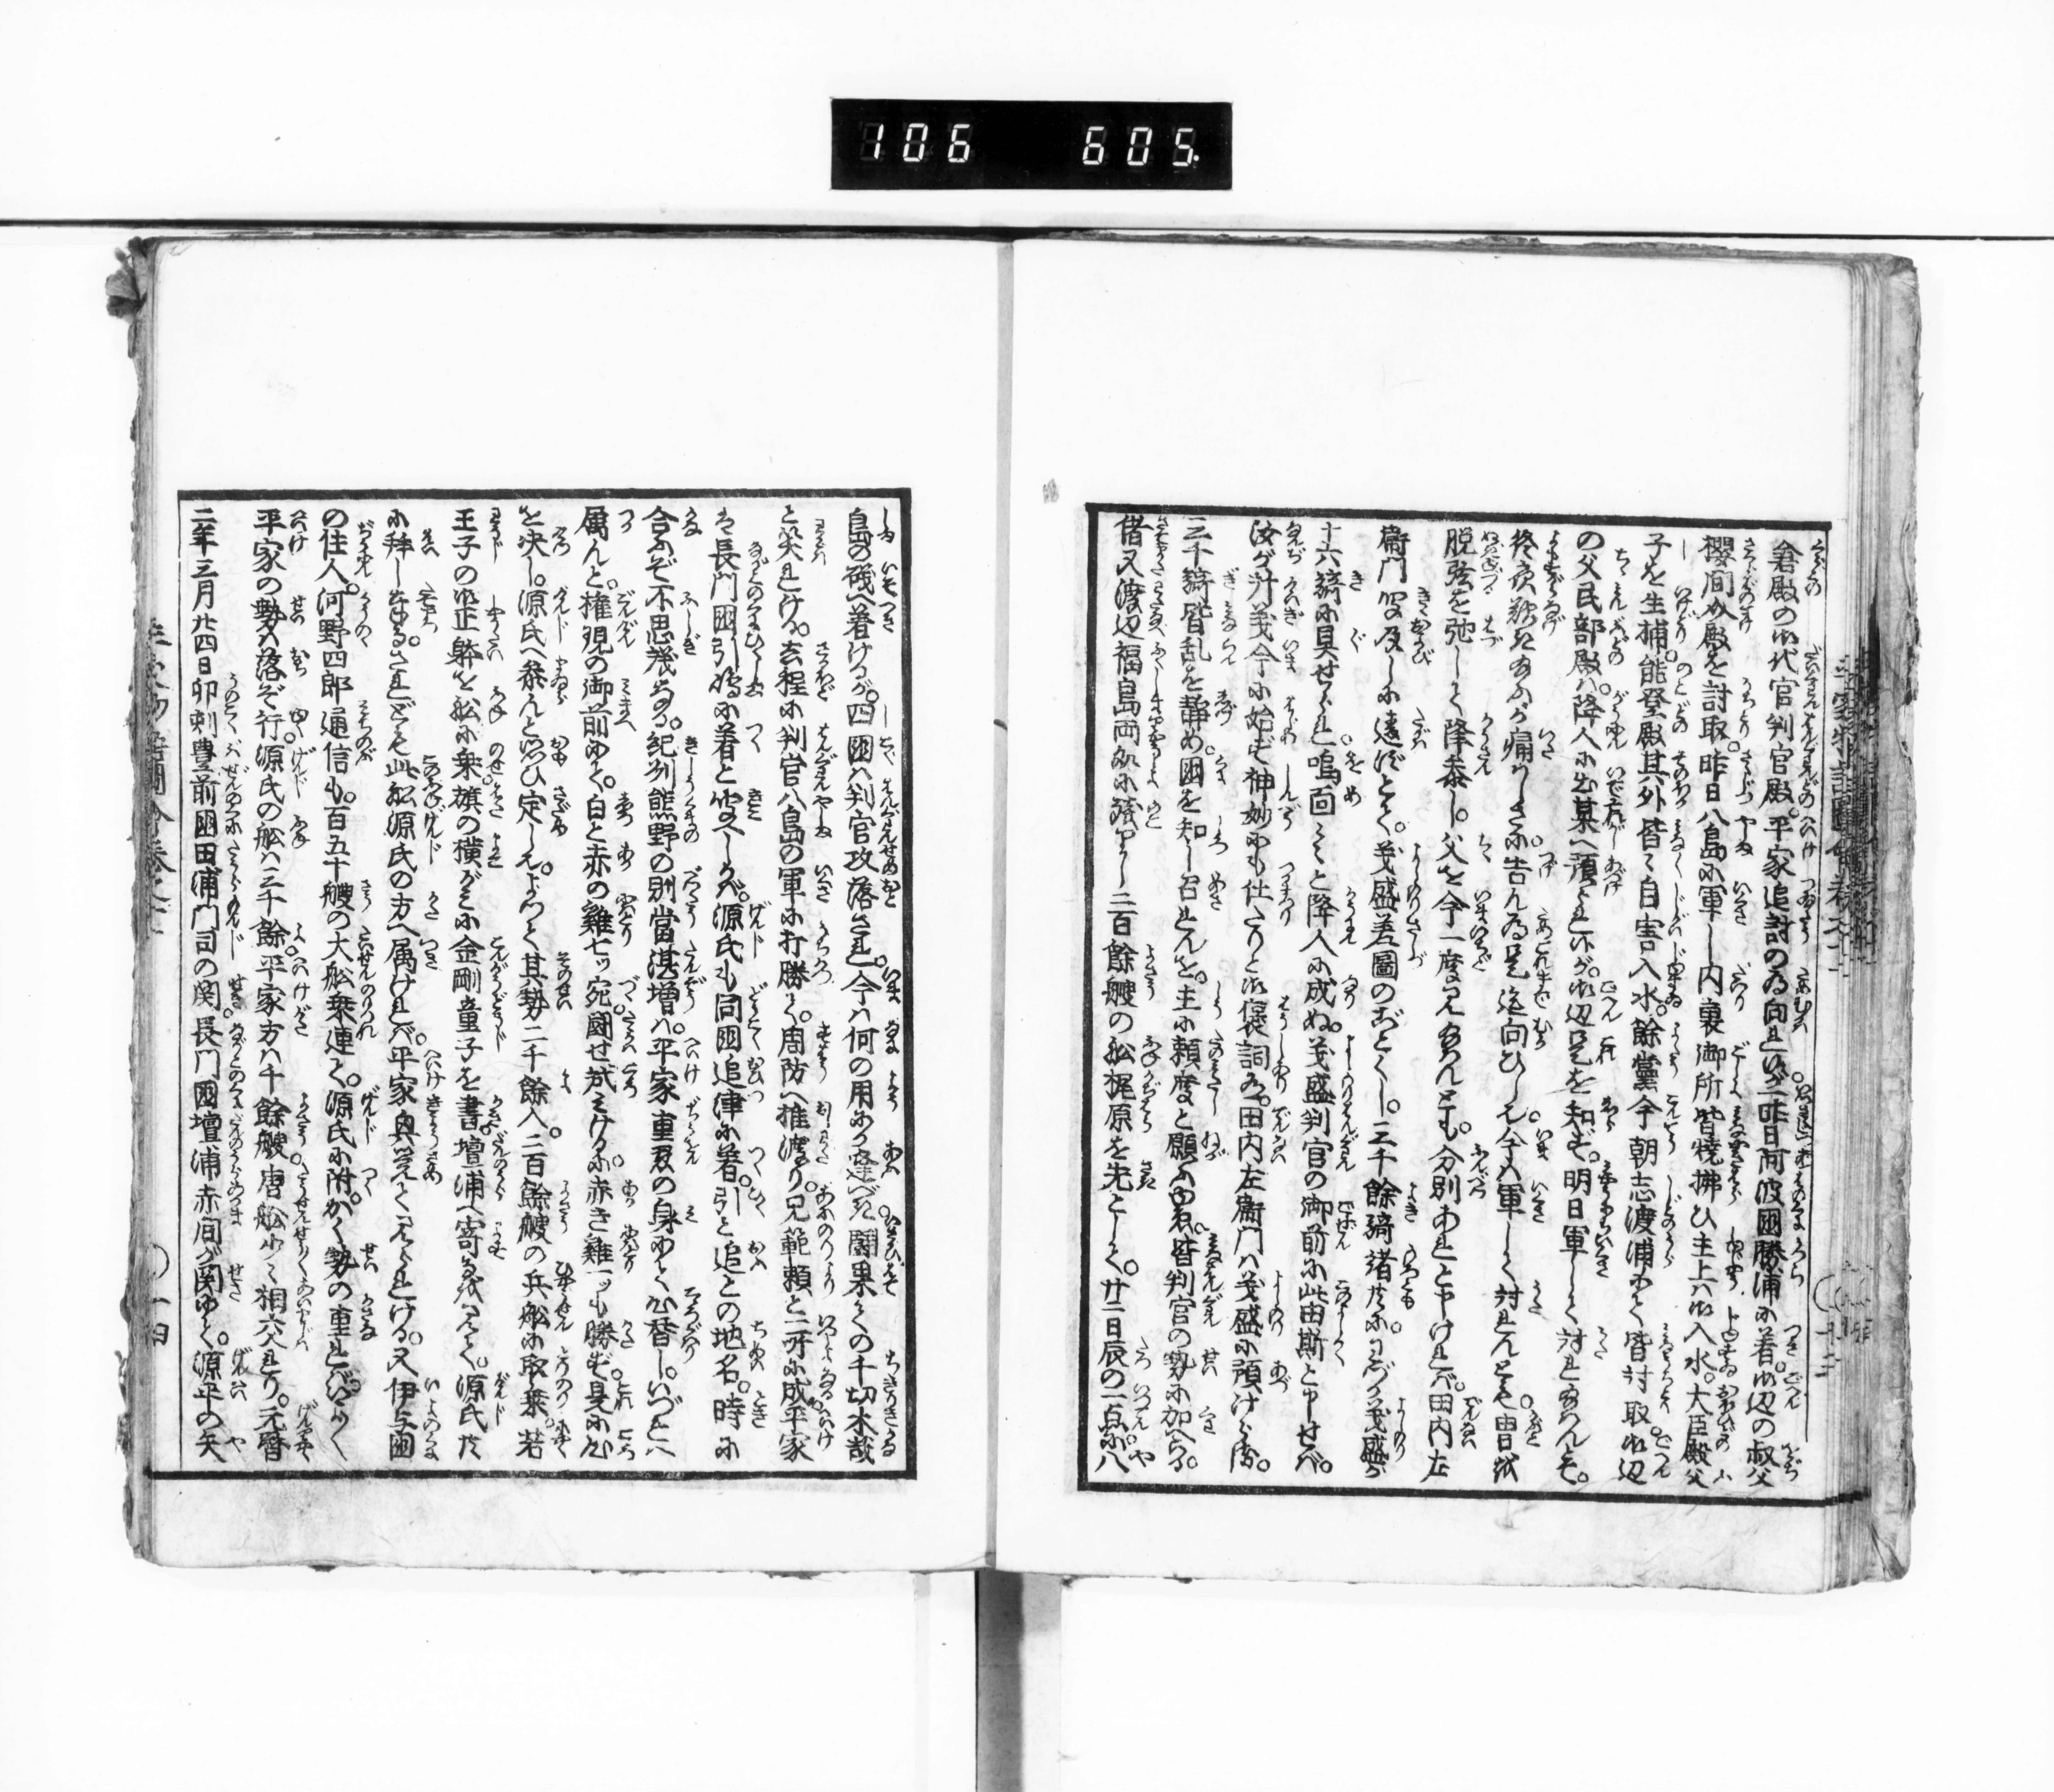 106 605
倉殿の御代官判官殿。平家追討の為向れ候が一昨日阿波国勝浦に着。御辺の叔父
桜間介殿を討取。昨日八島に軍し内裏御所皆焼払ひ主上ハ御入水。大臣殿父
子を生捕。能登殿其外皆〻自害入水。余党今朝志渡浦にて皆討取。御辺
の父民部殿ハ降人に出某へ預られ候が。御辺是を知ず。明日軍して討れ給はんぞ。
終夜歎き給ふが痛ハしさに告ん為是迄向ひしも。今ハ軍して討れんとも。冑を
脱弦を弛して降参し。父を今一度見給はんとも。分別あれと申けれバ。田内左
衛門聞及しに違ずとて。義盛差図のごとくし。三千余騎諸共に。わづか義盛が
十六騎に具せられ。嗚呼をめ〳〵と降人に成ぬ。義盛判官の御前に此由斯と申せバ。
汝が計義今に始ず神妙にも仕たりと御褒詞有。田内左衛門ハ義盛に預けらる。
三千騎皆乱を静め。国を知し召れんを。主に頼度と願ふ由。皆判官の勢に加へらる。
偖又渡辺福島両処に残りし二百余艘の船梶原を先として。廿二日辰の一点に八
島の磯へ着けるが。四国ハ判官攻落され。今ハ何の用にか逢べき。闘果ての千切木哉
と笑れける。去程に判官八島の軍に打勝て。周防へ推渡り。兄範頼と一所に成。平家
は長門国引島に着と聞へしかバ。源氏も同国追津に着。引と追との地名。時に
合ふぞ不思議なる。紀州熊野の別当湛増ハ。平家重恩の身にて心替し。いづれへ
属んと。権現の御前にて。白と赤の鶏七ツ宛闘せ試ミけるに。赤き鶏一ツも勝ず。是に心
を決し。源氏へ参んと思ひ定しも。よつて其勢二千余人。二百余艘の兵船に取乗。若
王子の御正躰を船に乗。旗の横がミに金剛童子を書。壇浦へ寄るを見て。源氏共
に拝しなる。されども此船源氏の方へ属けれバ。平家興覚てみへられける。又伊与国
の住人。河野四郎通信も。百五十艘の大船乗連て。源氏に附。かく勢の重れバいよ〳〵
平家の勢ハ落ぞ行。源氏の船ハ三千余。平家方ハ千余艘。唐船少〻相交れり。元暦
二年三月廿四日卯刻豊前国田浦門司の関。長門国壇浦赤間が関にて。源平の矢